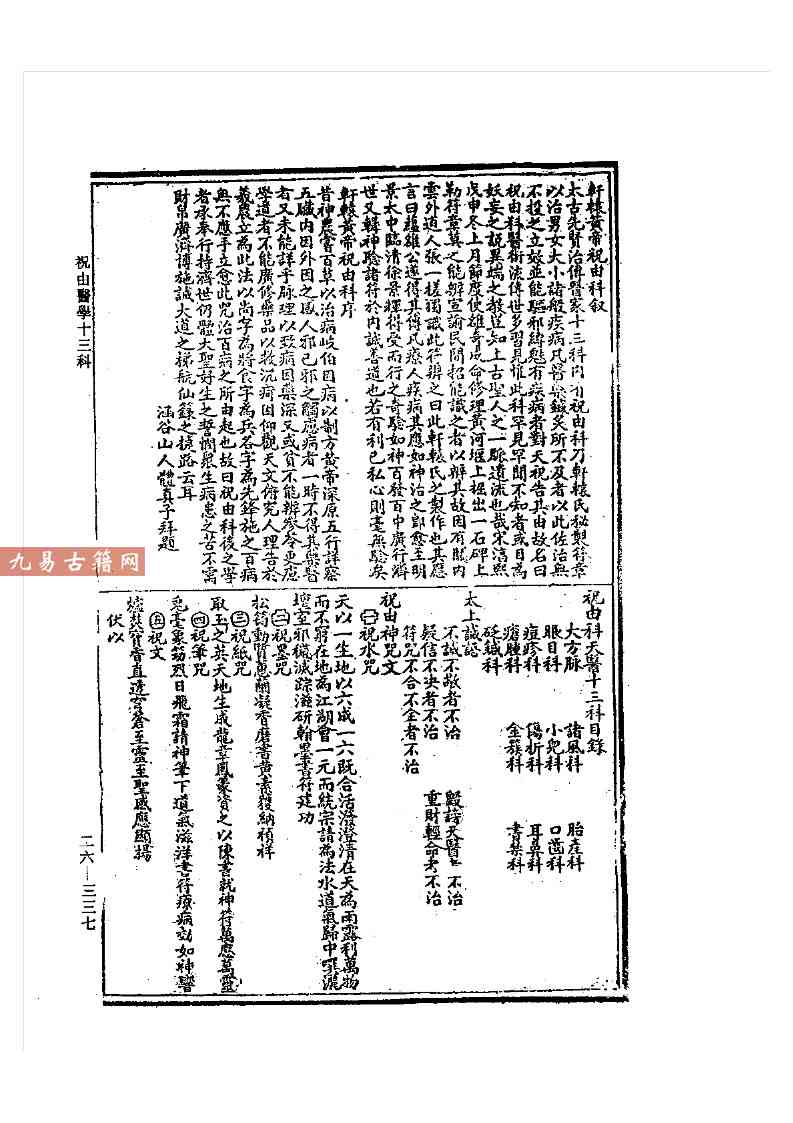 軒轅黃帝祝由科叙
太古先賢治傳醫家十三科內有祝由科乃軒轅氏秘製符章
以治男女大小諸般疾病凡醫藥鍼灸所不及者以此佐治無
不投之立效並能驅邪縛魅有疾病者對天祝告其由故名曰
祝由科醫術流傳世多習見惟此科罕見罕聞不知者或目為
妖妄之說異端之教豈知上古聖人之一脈遺流也哉宋淳熙
戊申冬上月節度使雄奇成命修理黃河堰上掘出一石碑上
勒符章莫之能辨宣諭民間招能識之者以辨其故因有關內
雲外道人張一槎獨識此符辨之曰此軒轅氏之製作也其應
言曰蘊雄公遂得其傳凡療人疾病其應如神治之即愈至明
景太中臨清徐景輝得受而行之奇驗如神百發百中廣行濟
世又轉神驗諸符於內誠善道也若有利已私心則毫無驗矣
軒轅黃帝祝由科序
昔神農嘗百草以治病岐伯因病以制方黃帝深原五行詳察
五臟內因外因之感人邪已邪之觸應病者一時不得其藥醫
者又未能詳乎脉理以致病因藥深又或貧不能辦參苓更慮
學道者不能廣修藥品以救沉疴因仰觀天文俯究人理告於
羲農立為此法以尚字為將食字為兵各字為先鋒施之百病
無不應手立愈此咒治百病之所由起也故曰祝由科後之學
者承奉行持濟世仍體大聖好生之誓憫衆生病患之苦不需
財帛廣濟博施誠大道之梯航仙籙之捷路云耳
涵谷山人體真子拜題
祝由科天醫十三科目錄
大方脉 諸風科 胎產科
眼目科 小兒科 口齒科
痘疹科 傷折科 耳鼻科
瘡腫科 金簇科 書禁科
砭鍼科
太上誠認
不誠不敬者不治 毀謗天醫者不治
疑信不決者不治 重財輕命者不治
符咒不合不全者不治
祝由神咒文
㊀祝水咒
天以一生地以六成一六既合活潑澄清在天為雨露利萬物
而不窮在地為江湖會一元而統宗請為法水道氣歸中噀濃
壇室邪穢滅踪滋研翰墨書符建功
㊁祝墨咒
松筠勁質蕙蘭凝香磨書黃素獲納禎祥
㊂祝紙咒
取玉之英天地生成龍章鳳篆資之以陳書就神符萬應萬靈
㊃祝筆咒
兔毫象笏烈日飛霜請神筆下道氣滋洋書符療病効如神響
㊄祝文
爐焚寶香直透穹蒼至靈至聖感應顯揚
伏以
祝由醫學十三科
二六—三三七
九易古籍网